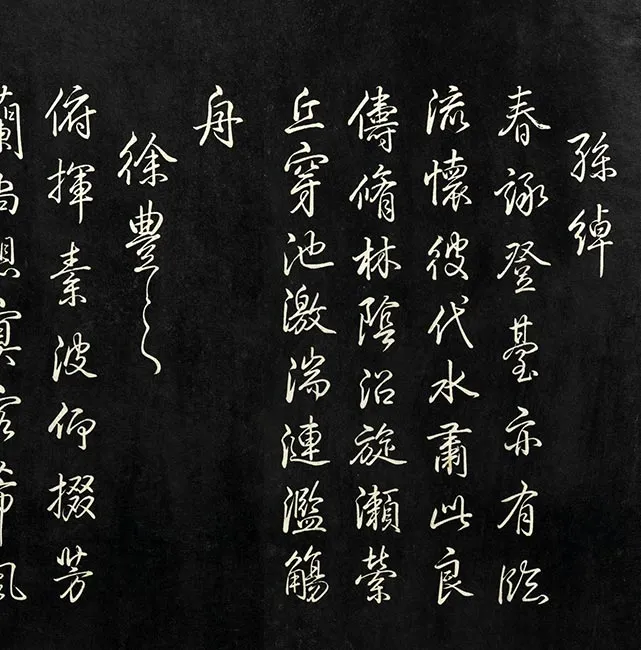 孫綽
春詠登臺亦有臨
流懷彼代水肅此良
儔脩林陰沿旋瀨縈
丘穿池激湍漣濫觴
舟
徐豐之
俯揮素波仰掇芳
蘭尚想冥客希風